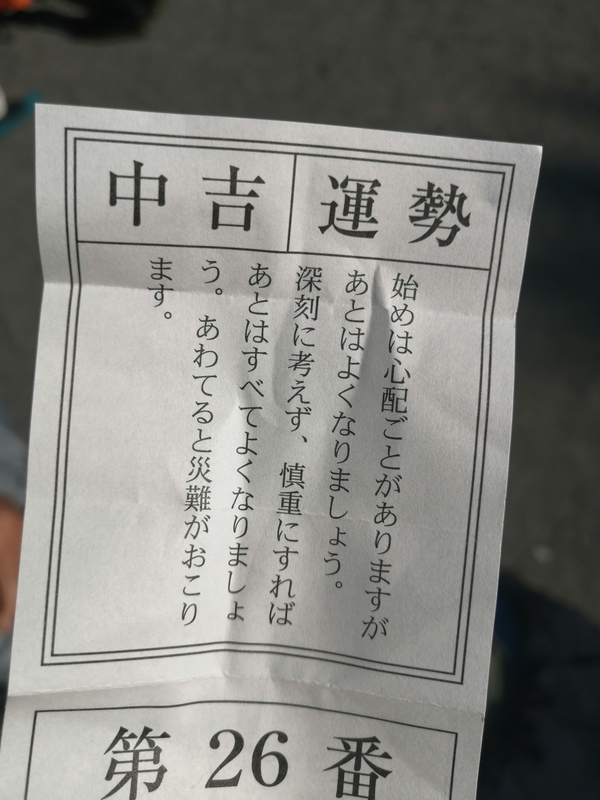 中吉 運勢
始めは心配ごとがありますが
あとはよくなりましょう。
深刻に考えず、慎重にすれば
あとはすべてよくなりましょ
う。あわてると災難がおこり
ます。
第26番